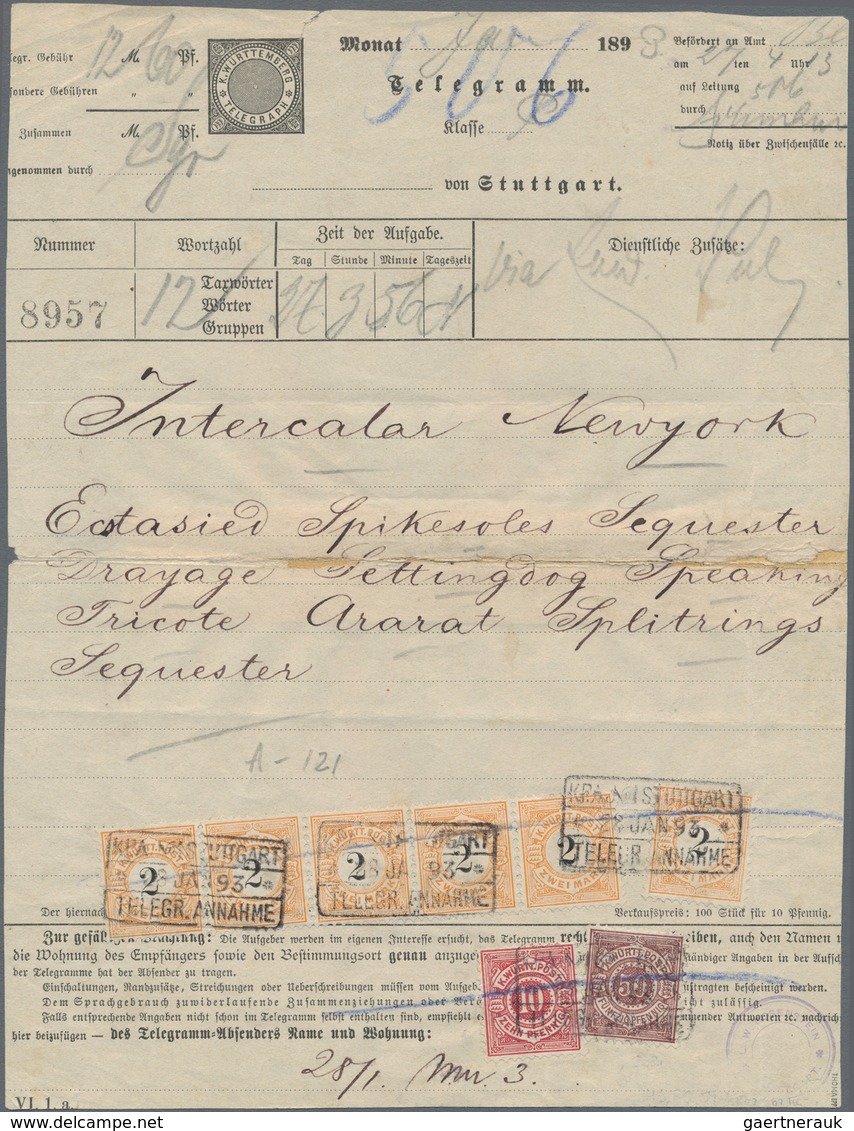 Monat Jan 189 3. Befördert an Amt
egr. Gebühr 12 M. 60 Pf.
K. WÜRTTEMBERG TELEGRAPH
am 27 ten 4 Uhr 13
Telegramm.
506
ondere Gebühren " "
auf Leitung 506
Zusammen M. Pf.
Klasse
durch
Notiz über Zwischenfälle 2c.
ngenommen durch
von Stuttgart.
Nummer Wortzahl Zeit der Aufgabe. Dienstliche Zusätze:
Tag Stunde Minute Tageszeit
via
8957 12 Taxwörter
Wörter 27 3 56
Gruppen
Intercalar Newyork
Ecstasied Spikesoles Sequester
Drayage Settingdog Speaking
Tricote Ararat Splitrings
Sequester
A-121
K. WÜRTT. POST 2 ZWEI MARK
STUTTGART
28 JAN 93
TELEGR. ANNAHME
Der hiernach
Verkaufspreis: 100 Stück für 10 Pfennig.
Zur gefälligen Beachtung: Die Aufgeber werden im eigenen Interesse ersucht, das Telegramm recht eiben, auch den Namen u
die Wohnung des Empfängers sowie den Bestimmungsort genau anzugeb ständiger Angaben in der Aufsch
der Telegramme hat der Absender zu tragen.
Einschaltungen, Randzusätze, Streichungen oder Ueberschreibungen müssen vom Aufgeb uftragten bescheinigt werden.
Dem Sprachgebrauch zuwiderlaufende Zusammenziehungen oder Ver icht zulässig.
Falls entsprechende Angaben nicht schon im Telegramm selbst enthalten sind, empfiehlt e mmender Antworten 2c. nachrich
hier beizufügen — des Telegramm-Absenders Name und Wohnung:
K. WÜRTT. POST 10 ZEHN PFENNIG
K. WÜRTT. POST 50 FÜNFZIG PFENNIG
28/1. 3.
VI. 1. a.
gaertnerauk